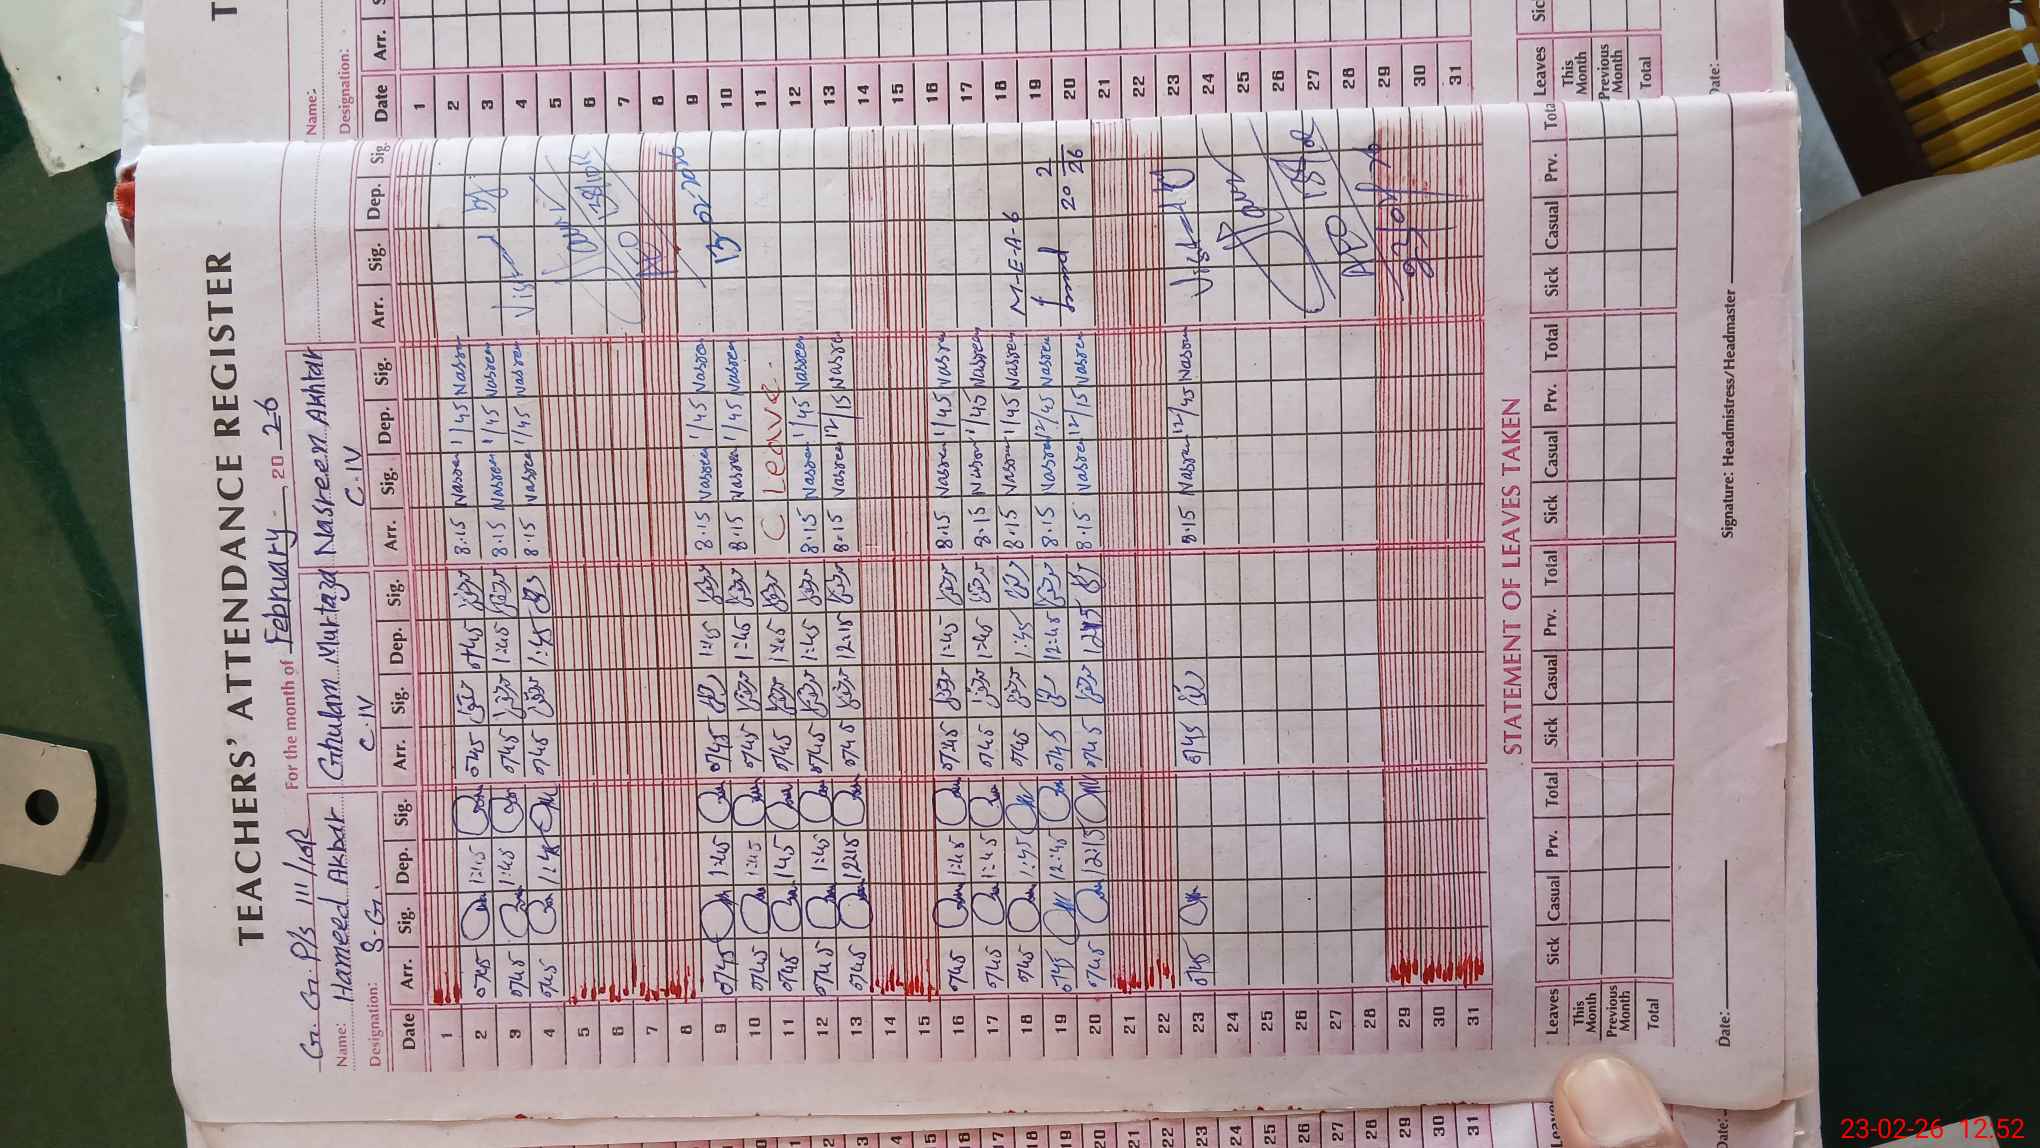 TEACHERS' ATTENDANCE REGISTER
G. G. P/s 111/10R For the month of February 20 26
Name: Hameed Akbar Ghulam Murtaza Nasreem Akhtar
Designation: S-G. C.IV C.IV
Date Arr. Sig. Dep. Sig. Arr. Sig. Dep. Sig. Arr. Sig. Dep. Sig. Arr. Sig. Dep. Sig.
1
2 0745 1:45 0745 0745 8.15 Nasreen 1/45 Nasreen
3 0745 1:45 0745 1:45 8.15 Nasreen 1/45 Nasreen
4 0745 1:45 0745 1:45 8.15 Nasreen 1/45 Nasreen Visit
5
6
7
8
9 0745 1:45 0745 1:45 8.15 Nasreen 1/45 Nasreen
10 0745 1:45 0745 1:45 8.15 Nasreen 1/45 Nasreen
11 0745 1:45 0745 1:45 C Leave
12 0745 1:45 0745 1:45 8.15 Nasreen 1/45 Nasreen
13 0745 12:15 0745 12:15 8.15 Nasreen 12/15 Nasreen
14
15
16 0745 1:45 0745 1:45 8.15 Nasreen 1/45 Nasreen
17 0745 1:45 0745 1:45 8.15 Nasreen 1/45 Nasreen
18 0745 1:45 0745 1:45 8.15 Nasreen 1/45 Nasreen M-E-A-6
19 0745 12:45 0745 12:45 8.15 Nasreen 12/45 Nasreen
20 0745 12:15 0745 12:15 8.15 Nasreen 12/15 Nasreen 20 2/26
21
22
23 0745 0745 8.15 Nasreen 12/45 Nasreen
24
25
26
27
28
29
30
31
STATEMENT OF LEAVES TAKEN
Leaves Sick Casual Prv. Total Sick Casual Prv. Total Sick Casual Prv. Total Sick Casual Prv. Total
This Month
Previous Month
Total
Date: Signature: Headmistress/Headmaster
Name:
Designation:
Date Arr.
1
2
3
4
5
6
7
8
9
10
11
12
13
14
15
16
17
18
19
20
21
22
23
24
25
26
27
28
29
30
31
Leaves
This Month
Previous Month
Total
Date:
23-02-26 12:52